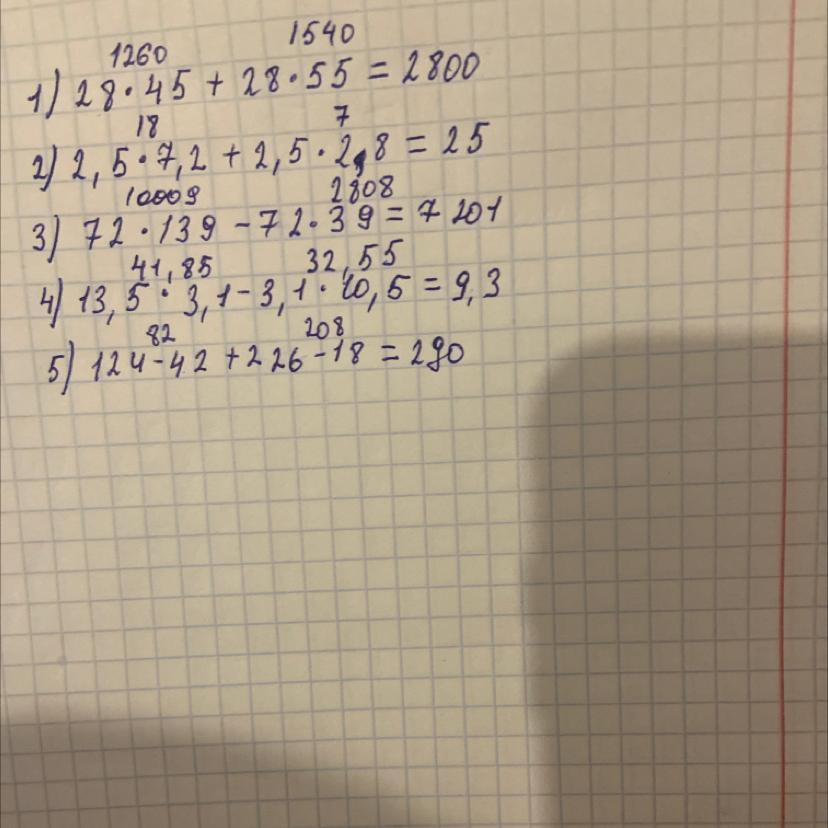 1260 1540
1) 28·45 + 28·55 = 2800
18 7
2) 2,5·7,2 + 2,5·2,8 = 25
10009 2808
3) 72·139 - 72·39 = 7201
41,85 32,55
4) 13,5·3,1 - 3,1·10,5 = 9,3
82 208
5) 124-42 + 226-18 = 290